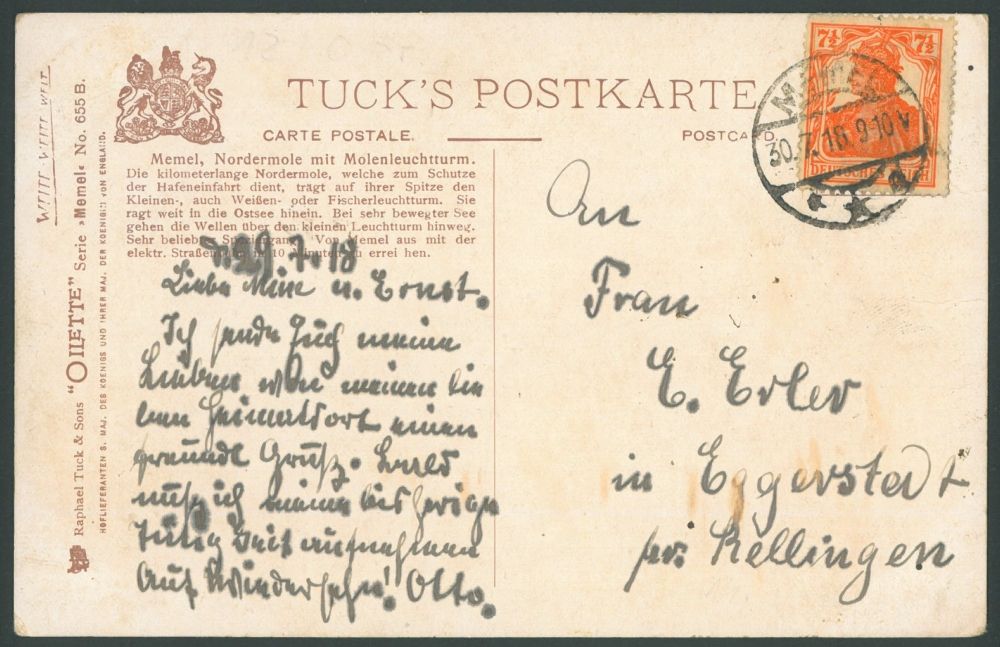 TUCK'S POSTKARTE
CARTE POSTALE.
POSTCARD.
Memel, Nordermole mit Molenleuchtturm.
Die kilometerlange Nordermole, welche zum Schutze
der Hafeneinfahrt dient, trägt auf ihrer Spitze den
Kleinen-, auch Weißen- oder Fischerleuchtturm. Sie
ragt weit in die Ostsee hinein. Bei sehr bewegter See
gehen die Wellen über den kleinen Leuchtturm hinweg.
Sehr beliebter Spaziergang. Von Memel aus mit der
elektr. Straßenbahn in 10 Minuten zu erreichen.
d. 29.7.18
Liebe Mine u. Ernst.
Ich sende Euch meine
Lieben von meinen lie
ben Heimatsort einen
freundl Gruß. Bald
muß ich meine bisherige
Tätigkeit aufnehmen
Auf Wiedersehn! Otto.
Raphael Tuck & Sons "OILETTE" Serie »Memel« No. 655 B.
HOFLIEFERANTEN S. MAJ. DES KOENIGS UND IHRER MAJ. DER KOENIGIN VON ENGLAND.
7½ 7½
DEUTSCHES REICH
MEMEL
30.7.18. 9-10V
a
An
Frau
E. Erler
in Eggerstedt
pr. Rellingen